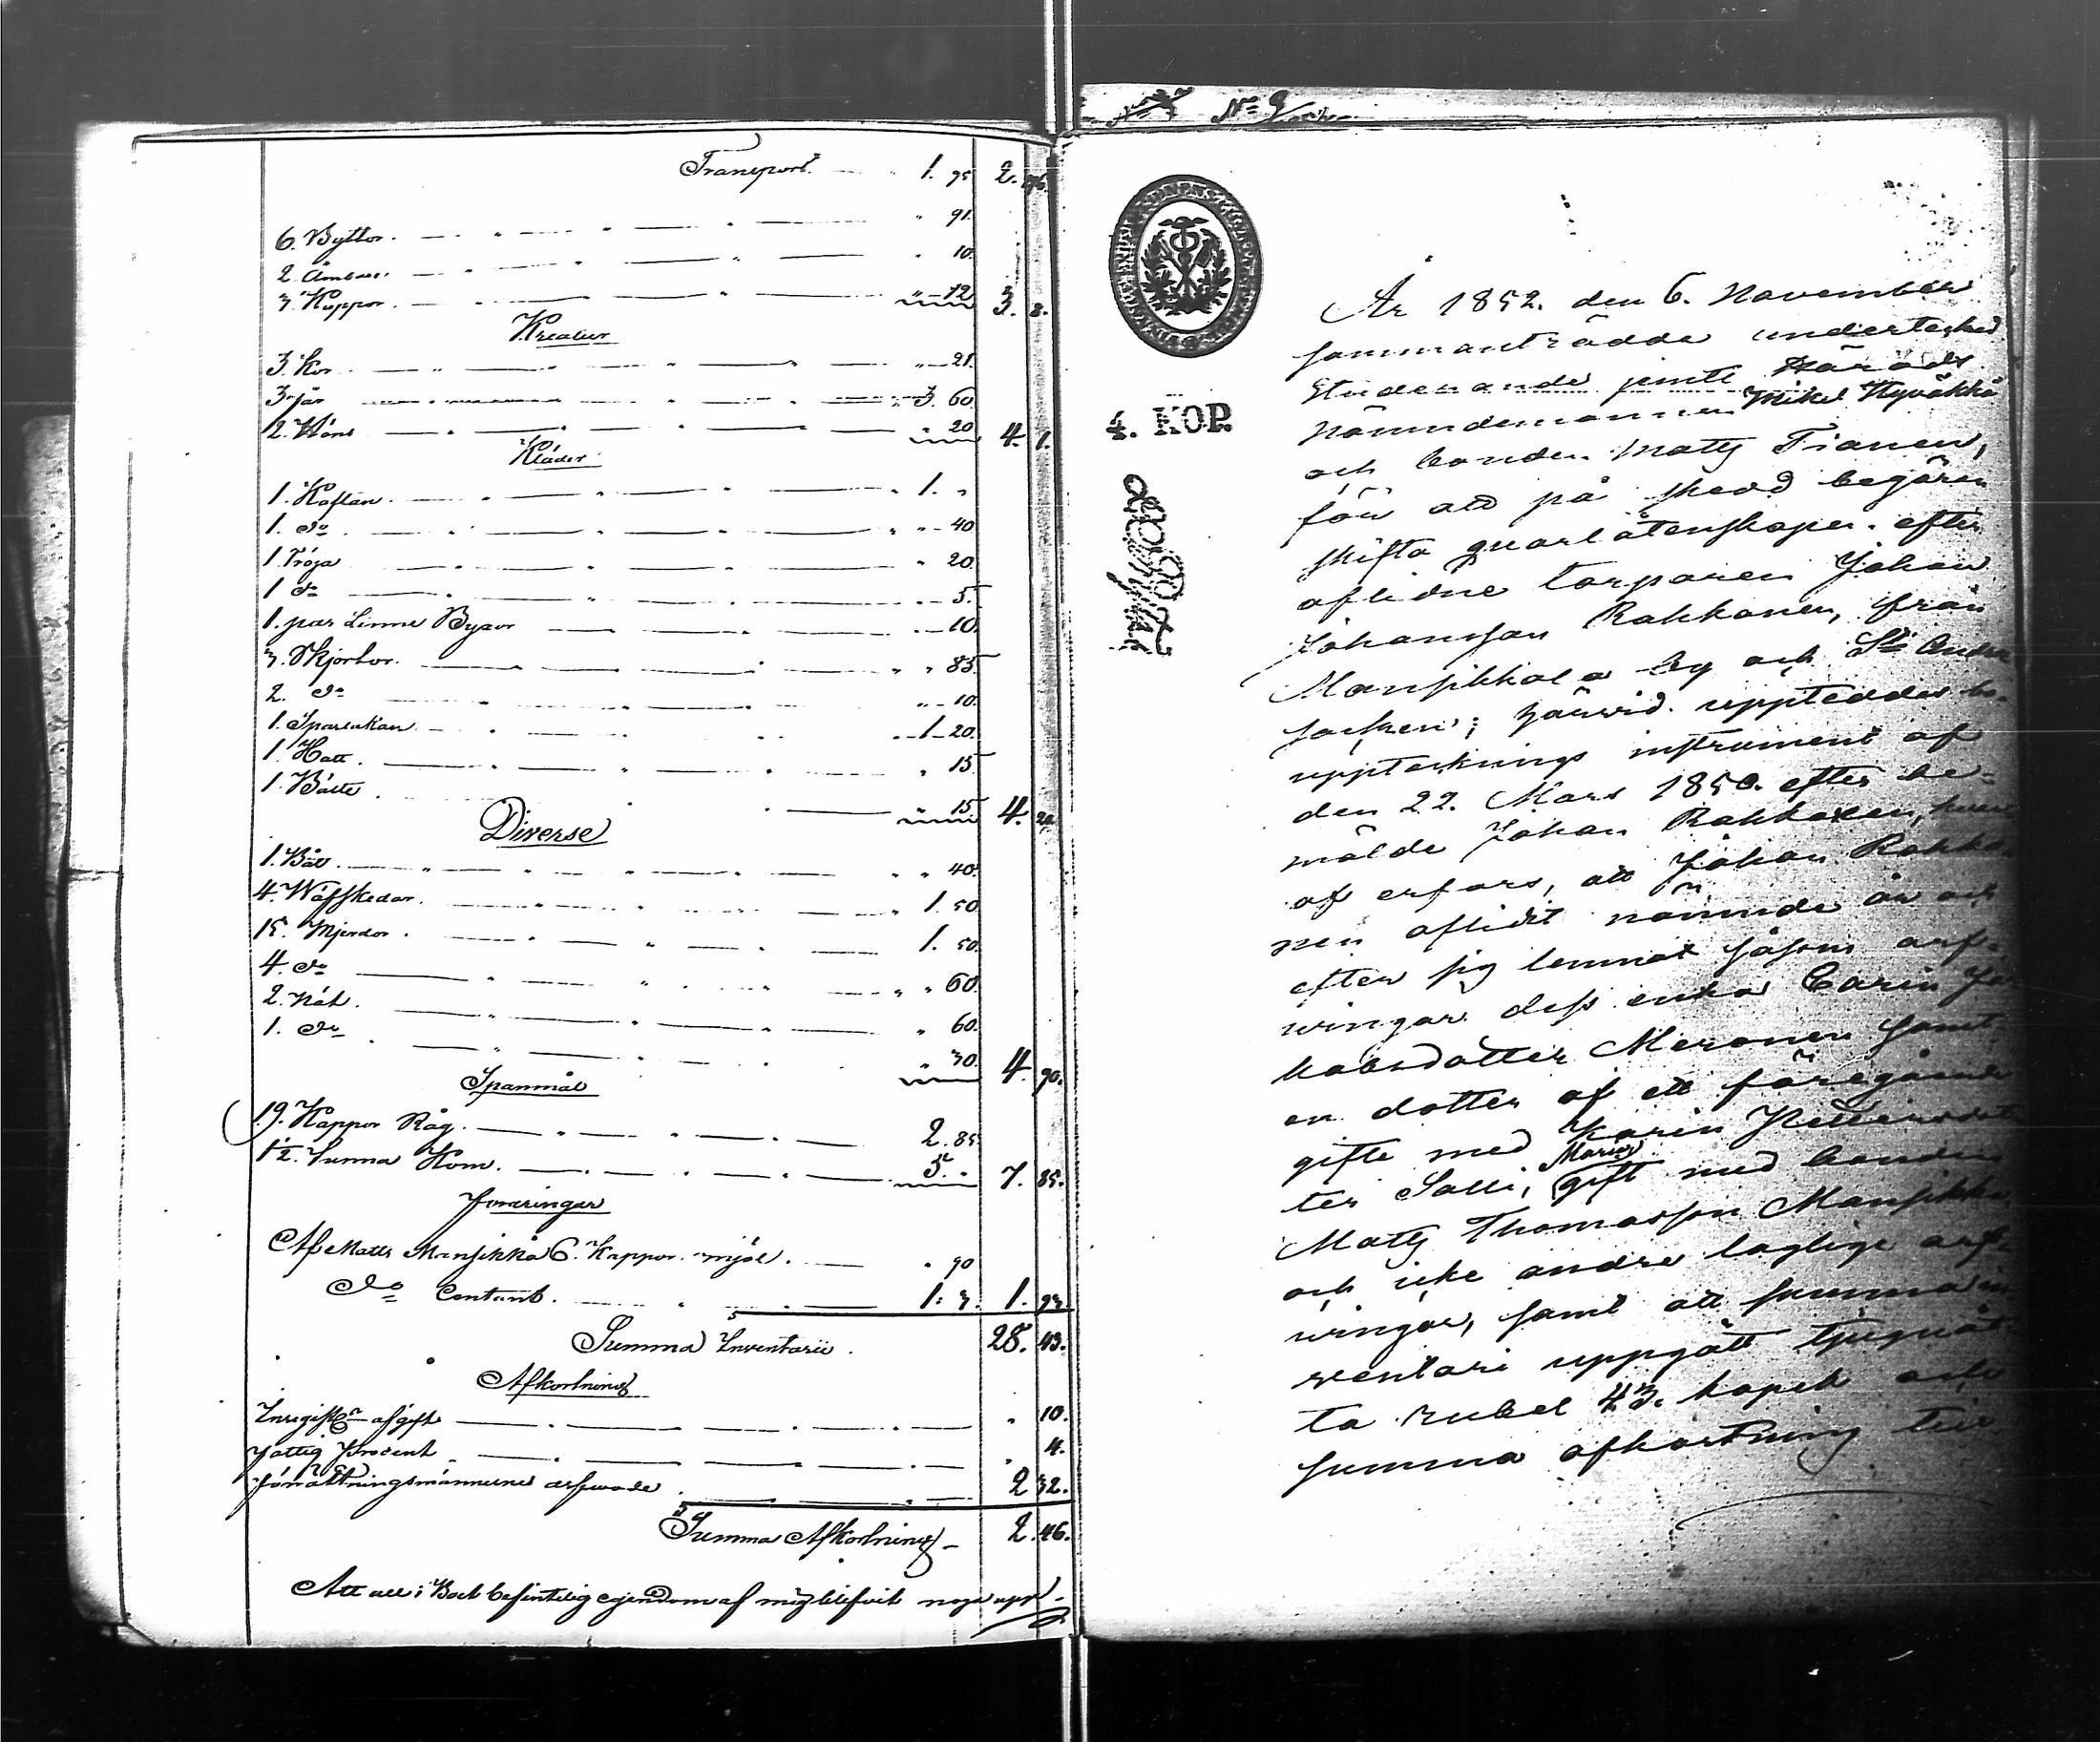 Transport 1. 95 2. 96.
6. Byttor. " 91.
2. Ämbar. " 10.
3. Koppor. " 12 3. 8.
Kreatur
3. Kor " 21.
3 får 3. 60
2. Höns " 20 4. 1.
Kläder
1. Kaftan. 1. "
1. do " 40
1. Tröja " 20
1 do " 5.
1. par Linne Byxor " 10.
3. Skjortor. " 85
2. do " 10.
1. 1 20.
1. Hatt. " 15
1. Bälte. " 15 4. 20.
Diverse
1. Båt. " 40.
4. Wäfskedar. 1. 50
15. Mjerdor. 1. 50.
4. do " 60.
2. Nät. " 60.
1. do " 30. 4. 90.
Spanmål
19. Kappor Råg. 2. 85
1 1/2. Tunna Korn. 5. " 7. 85.
Fordringar
Af Matts Mansikka 6. Kappor mjöl. " 90
do Contant. 1: 3. 1. 93
Summa Inventarii. 28. 43.
Afkortning
afgift " 10.
Fattig Procent " 4.
Förrättningsmännernes arfwode 2 32.
Summa Afkortning 2. 46.
Att all i Boet befintelig egendom af mig blifvit noga upp-
No 9
4. KOP.
År 1852. den 6. November
sammanträdde undertecknad
Studerande jemte Härads
Nämndemannen Mikel Hyväkkä
och bonden Matts Tianen,
för att på skedd begäran
skifta quarlåtenskapen efter
aflidne torparen Johan
Johansson Rahkonen, från
Mansikkala by och St: Andreæ
socken; härvid uppteddes bo-
uppteknings instrument af
den 22. Mars 1850. efter be-
mälde Johan Rahkonen, hwar
af erfars, att Johan Rahko-
nen aflidit nämnde år och
efter sig lemnat såsom arf-
wingar dess enka Carin Ja-
kobsdotter Meronen samt
en dotter af ett föregående
gifte med Karin
ter Salli, Maria gift med bonden
Matts Thomasson Mansikka
och icke andre laglige arf-
wingar, samt att summa in-
ventari uppgått tjuguåt-
ta rubel 43. kopek och
summa afkortning till